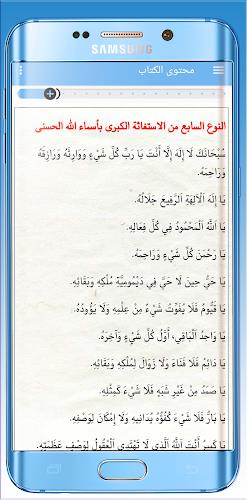 SAMSUNG
محتوى الكتاب
النوع السابع من الاستغاثة الكبرى بأسماء الله الحسنى
سُبْحَانَكَ لَا إِلَهَ إِلَّا أَنْتَ يَا رَبَّ كُلِّ شَيْءٍ وَوَارِثَهُ وَرَازِقَهُ
وَرَاحِمَهُ.
يَا إِلَهَ الْآلِهَةِ الرَّفِيعَ جَلَالُهُ.
يَا اللهُ الْمَحْمُودُ فِي كُلِّ فِعَالِهِ.
يَا رَحْمَنَ كُلِّ شَيْءٍ وَرَاحِمَهُ.
يَا حَيُّ حِينَ لَا حَيَّ فِي دَيْمُومِيَّةِ مُلْكِهِ وَبَقَائِهِ.
يَا قَيُّومُ فَلَا يَفُوتُ شَيْءٌ مِنْ عِلْمِهِ وَلَا يَؤُودُهُ.
يَا وَاحِدُ الْبَاقِي، أَوَّلُ كُلِّ شَيْءٍ وَآخِرَهُ.
يَا دَائِمُ فَلَا فَنَاءَ وَلَا زَوَالَ لِمُلْكِهِ وَبَقَائِهِ.
يَا صَمَدُ مِنْ غَيْرِ شَبَهٍ فَلَا شَيْءَ كَمِثْلِهِ.
يَا بَارُّ فَلَا شَيْءَ كُفُوُهُ يُدَانِيهِ وَلَا إِمْكَانَ لِوَصْفِهِ.
يَا كَبِيرُ أَنْتَ اللهُ الَّذِي لَا تَهْتَدِي الْعُقُولُ لِوَصْفِ عَظَمَتِهِ.